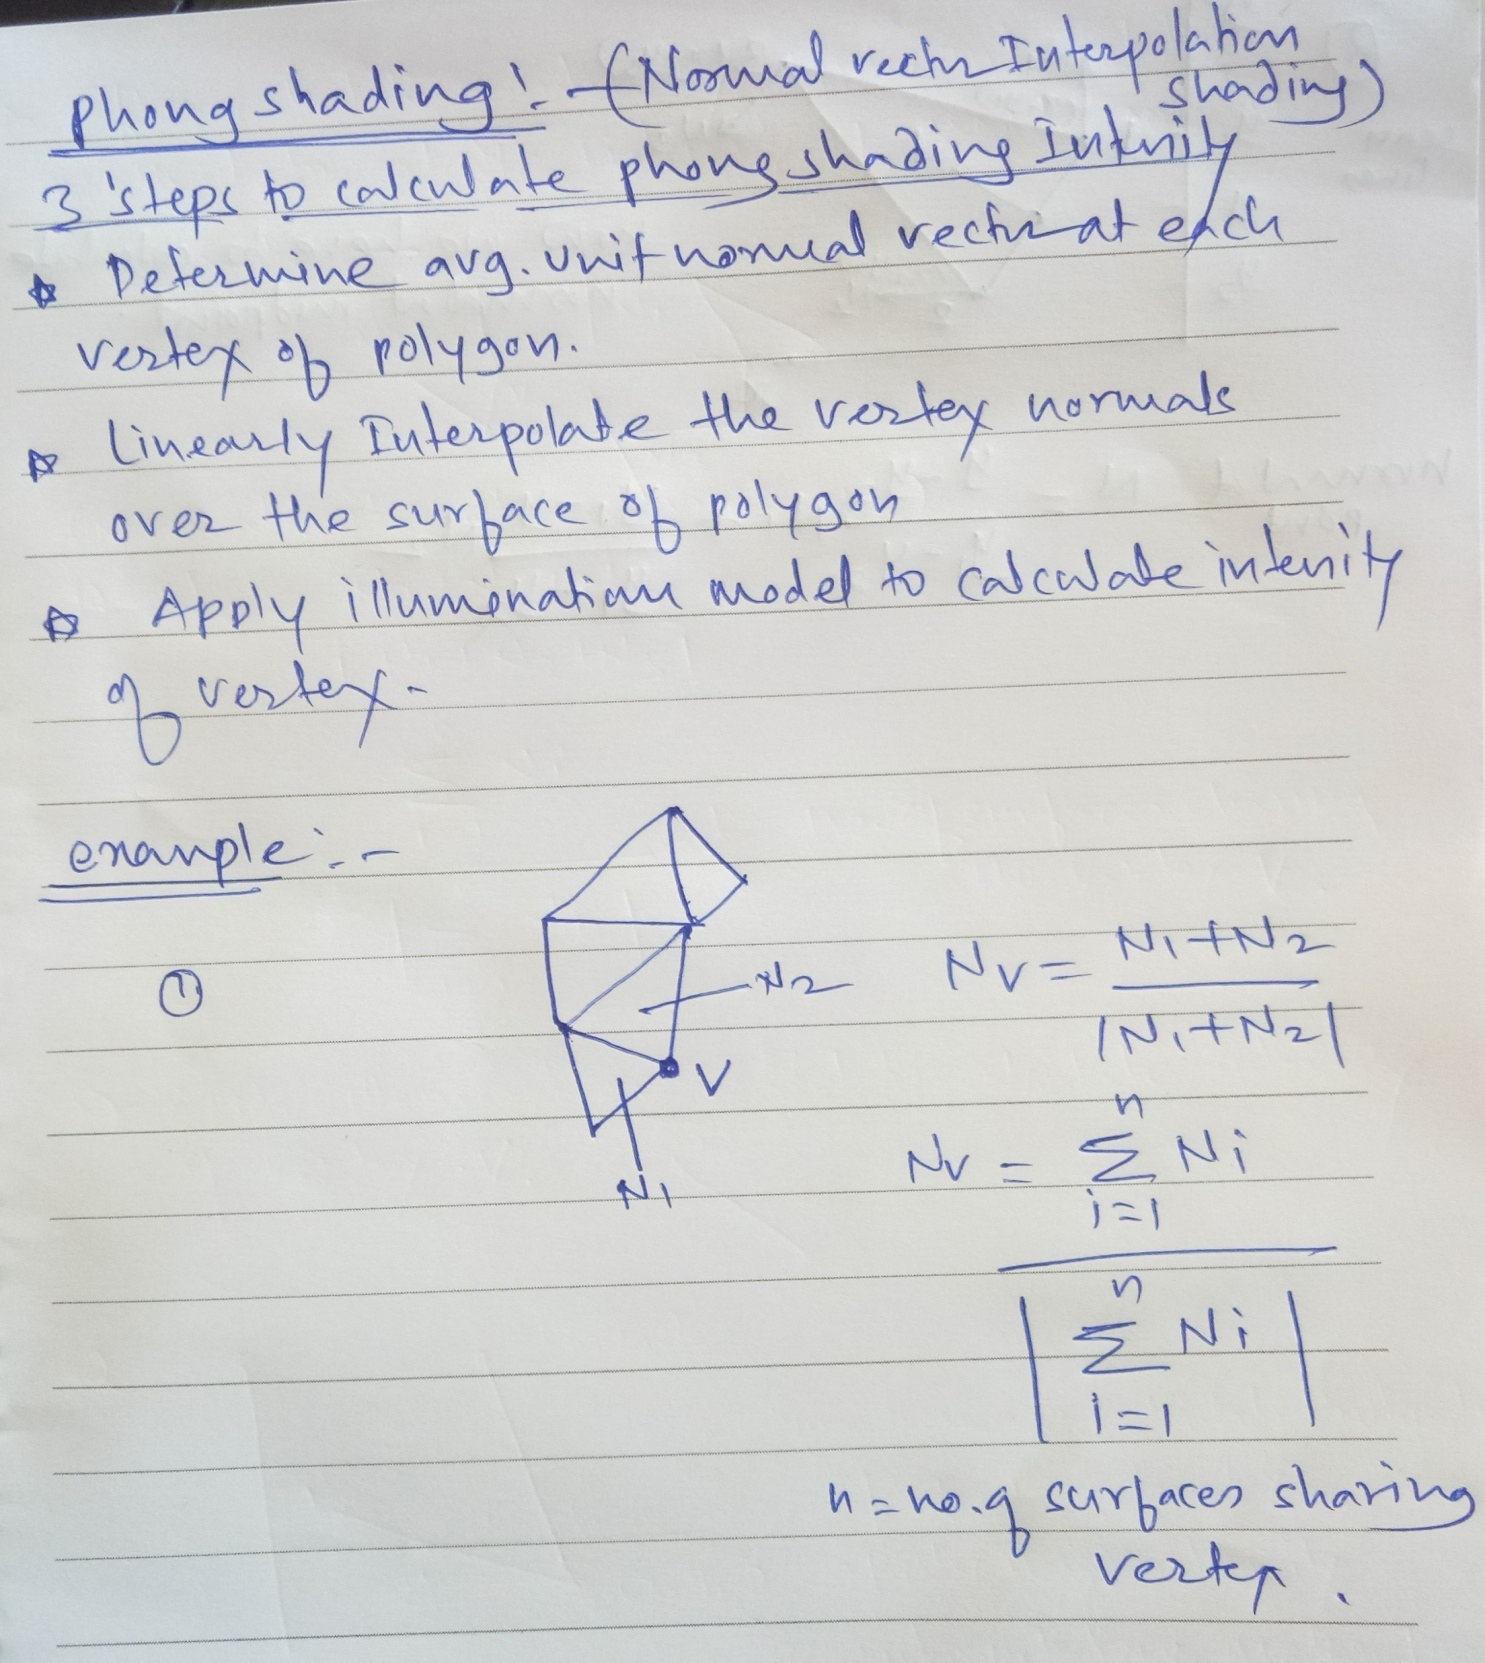 phong shading :- (Normal vector Interpolation
shading)
3 steps to calculate phong shading Intenity
☆ Determine avg. unit normal vector at each
vertex of polygon.
☆ Linearly Interpolate the vertex normals
over the surface of polygon
☆ Apply illumination model to calculate intenity
of vertex.
example :-
①
N2
V
N1
Nv = N1+N2
|N1+N2|
n
Nv = Σ Ni
i=1
n
| Σ Ni |
i=1
n = no. of surfaces sharing
vertex.